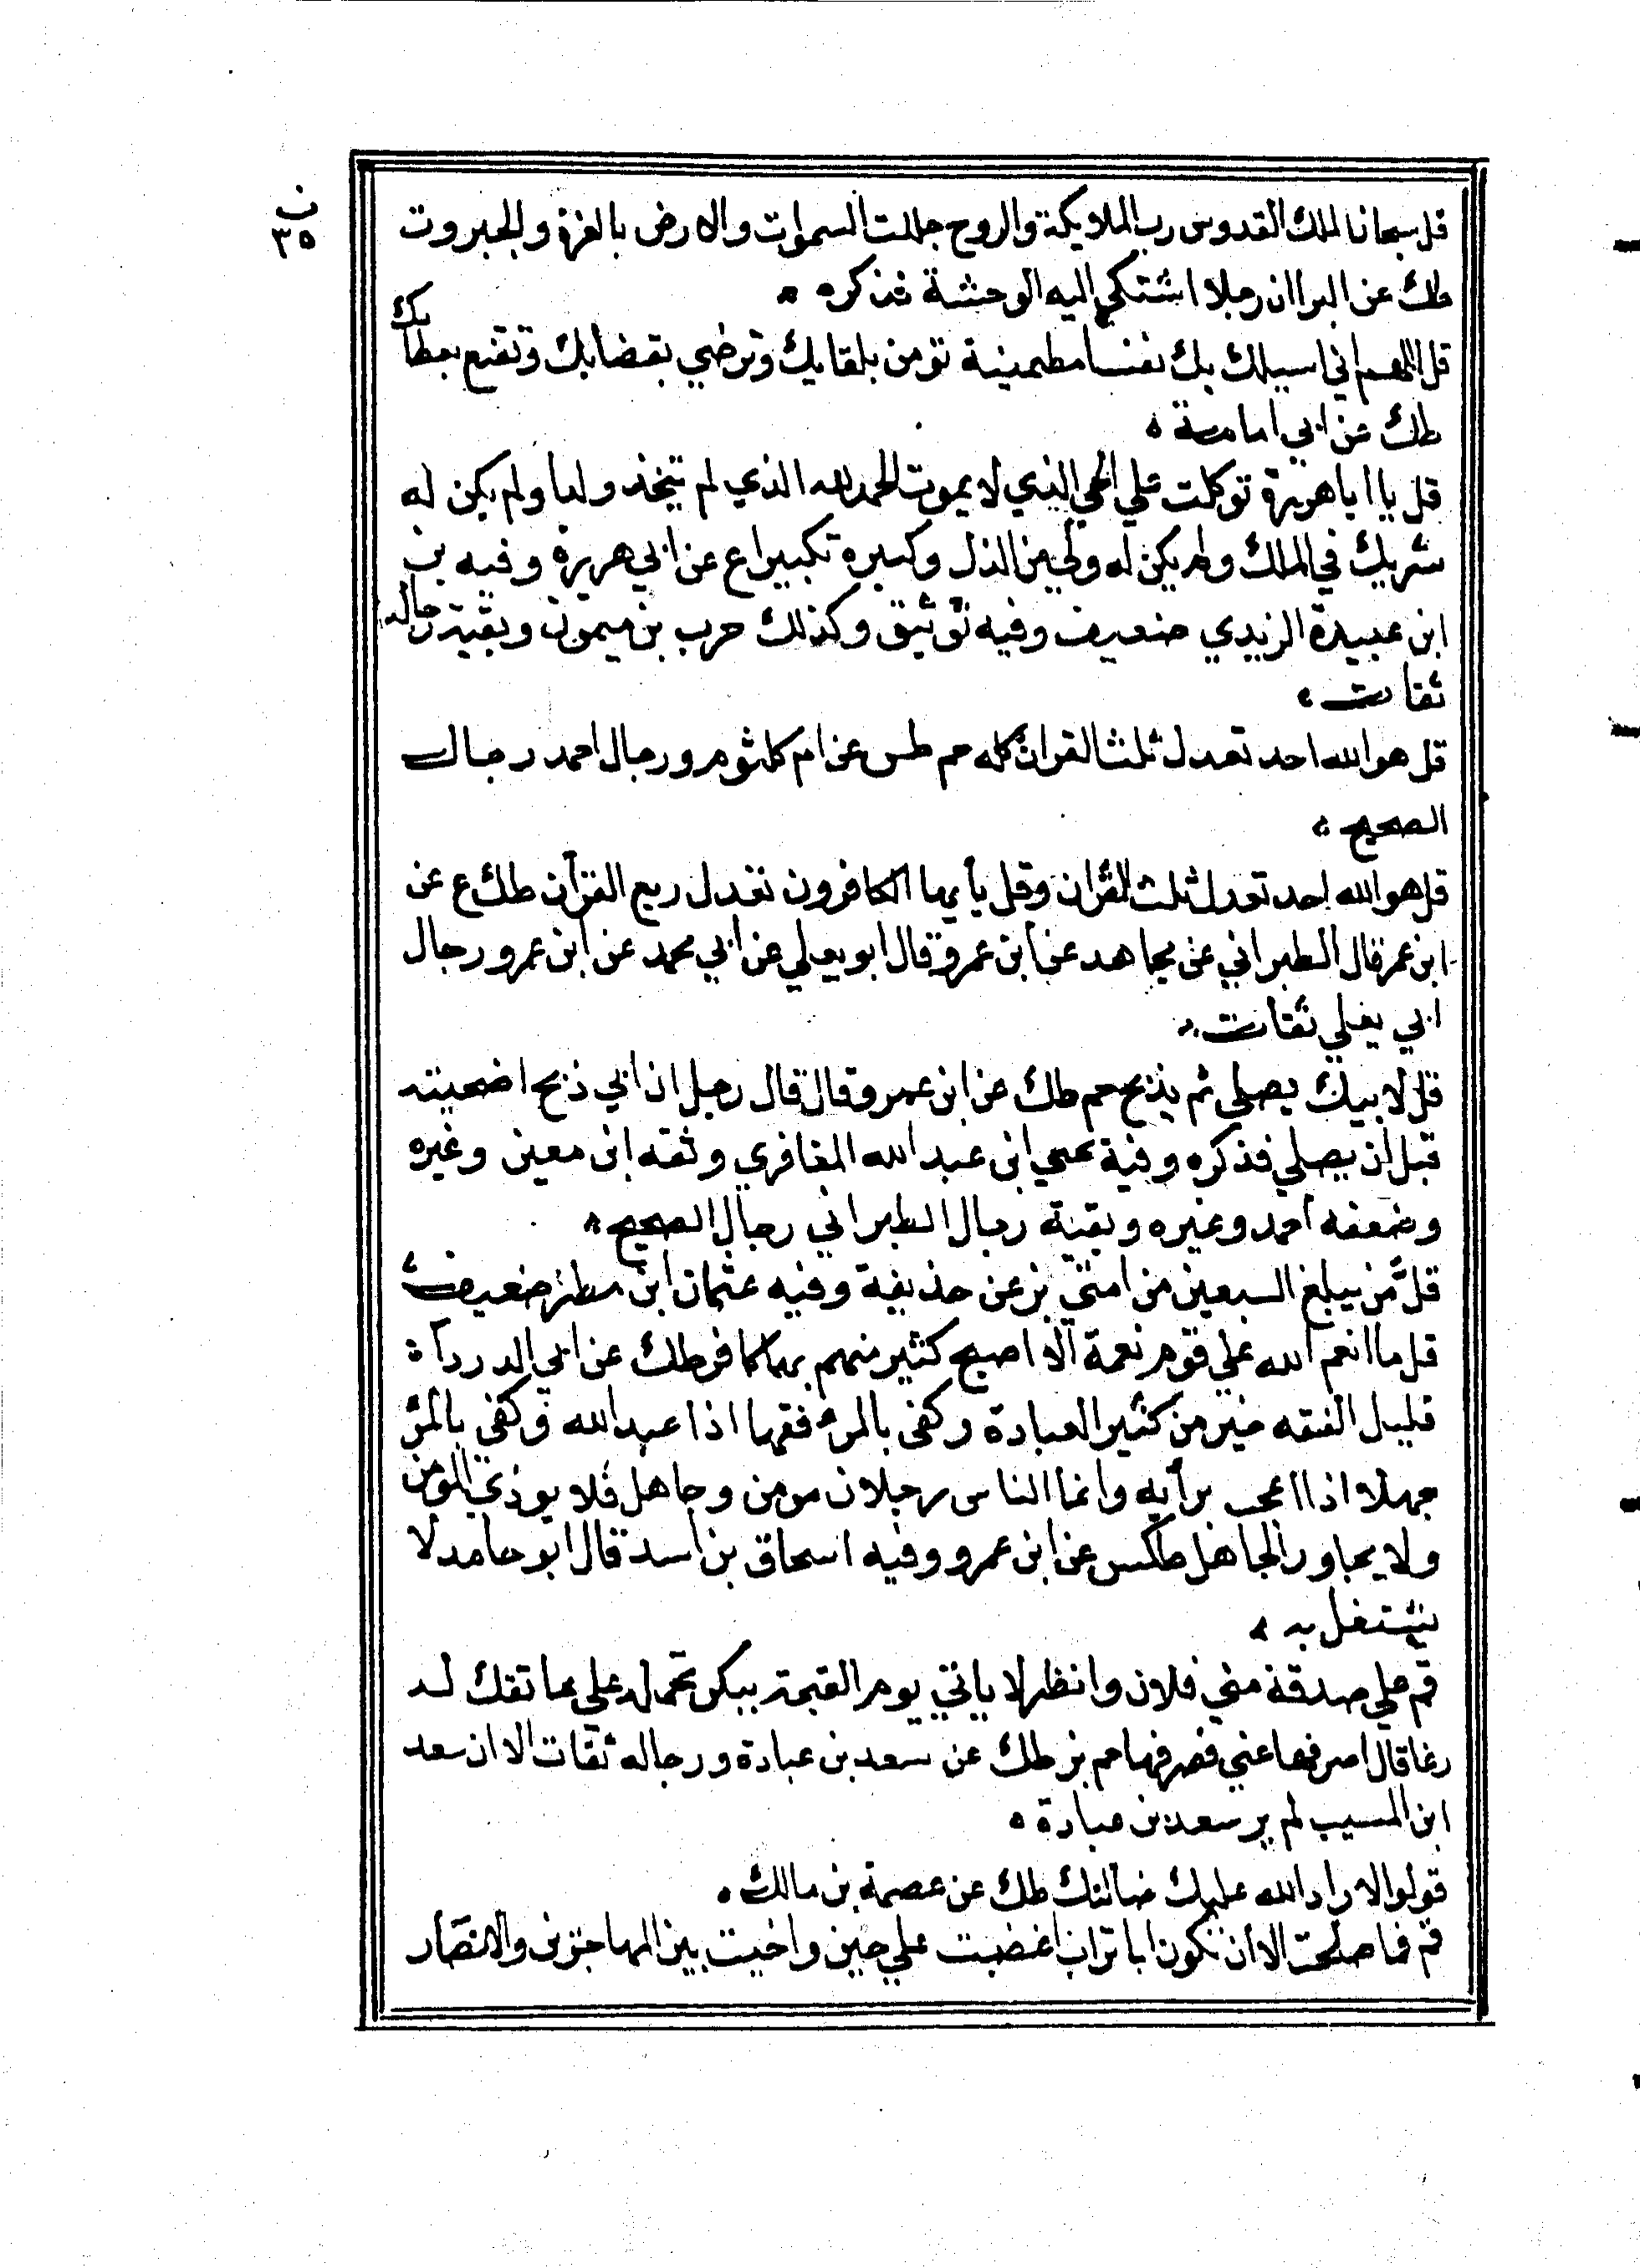 ن
٣٥
قل سبحانا لملك القدوس رب الملايكة والروح جللت السموات والارض بالعزة والجبروت
طك عن البراان رجلا اشتكي اليه الوحشة فذكره
قل اللهم اني اسيلك بك نفسا مطمينية تومن بلقايك وترضي بقضايك وتقنع بعطايك
طك عن ابي امامة
قل يا ابا هريرة توكلت علي الحي الذي لا يموت الحمد لله الذي لم يتخذ ولدا ولم يكن له
شريك في الملك ولم يكن له ولي من الذل وكبره تكبيرا ع عن ابي هريرة وفيه بن
ابن عبيدة الزيدي ضعيف وفيه توثيق وكذلك حرب بن ميمون وبقية رجاله
ثقات
قل هو الله احد تعدل ثلث القران كله حم طس عن ام كلثوم ورجال احمد رجال
الصحيح
قل هو الله احد تعدل ثلث القران وقل يأيها الكافرون تعدل ربع القرآن طك ع عن
ابن عمر قال الطبراني عن مجاهد عن ابن عمر وقال ابو يعلي عن ابي محمد عن ابن عمر ورجال
ابي يعلي ثقات
قل لابيك يصلي ثم يذبح حم طك عن ابن عمر وقال قال رجل ان ابي ذبح اضحيته
قبل ان يصلي فذكره وفية يحيي ابن عبد الله المغافري وثقه ابن معين وغيره
وضعفه احمد وغيره وبقية رجال الطبراني رجال الصحيح
قل من يبلغ السبعين من امتي بز عن حذيفة وفيه عثمان ابن مطر ضعيف
قل ما انعم الله علي قوم نعمة الا اصبح كثير منهم بها كافر طك عن ابي الدردآ
قليل الفقه خير من كثير العبادة وكفى بالمرء فقها اذا عبد الله وكفي بالمرء
جهلا اذا اعجب برأيه وانما الناس رجلان مومن وجاهل فلا يوذي المومن
ولا يجاور الجاهل طكس عن ابن عمرو وفيه اسحاق بن اسد قال ابو حامد لا
يشتغل به
قم علي صدقة مني فلان وانظر لا ياتي يوم القيمة ببكر تحمله علي عاتقك له
رغا قال اصرفها عني فصرفها حم بز طك عن سعد بن عبادة ورجاله ثقات الا ان سعد
ابن المسيب لم ير سعد بن عبادة
قولو الا راد الله عليك ضالتك طك عن عصمة بن مالك
قم فما صلحت الا أن تكون ابا تراب اغضبت علي حين واخيت بين المهاجرين والانصار